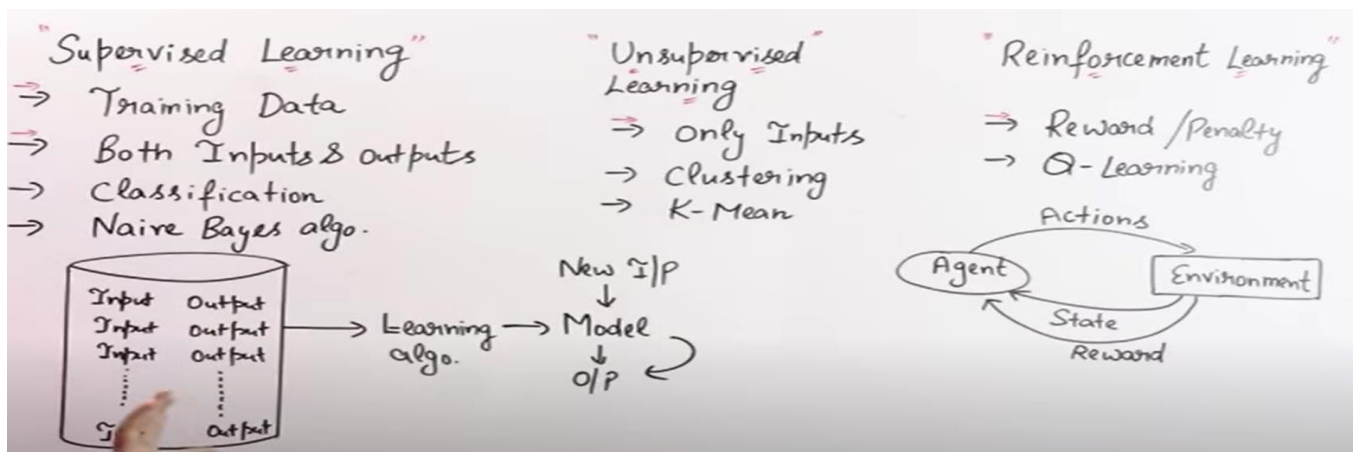 "Supervised Learning"
→ Training Data
→ Both Inputs & outputs
→ Classification
→ Naive Bayes algo.
Input Output
Input Output
Input Output
Output
Learning
algo.
New I/P
Model
O/P
"Unsupervised"
Learning
→ Only Inputs
→ Clustering
→ K-Mean
"Reinforcement Learning"
→ Reward/Penalty
→ Q-Learning
Actions
Agent
Environment
State
Reward